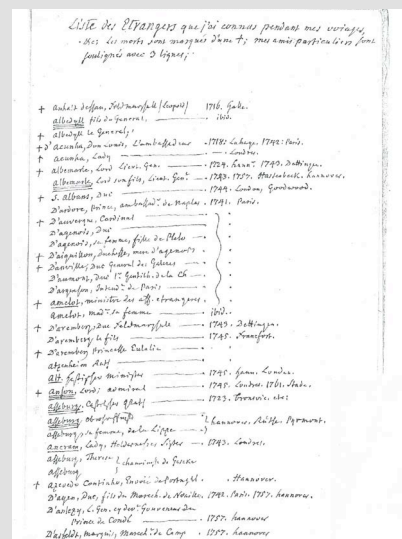 Liste des Etrangers que j'ai connus pendant mes voiages,
Les morts sont marqués d'une +; mes amis particuliers sont
soulignés avec 3 lignes;
+ Anhalt dessau, Feldmarschall (Leopold) 1716. Halle.
Albedyll fils du General, — ibid.
+ albedyll le General;
+ D'acunha, Don Louis, L'ambassadeur . 1718: Lahaye. 1742: Paris.
+ acunha, Lady — Londres.
+ albemarle, Lord Lieut. Gen. — . 1729. hann. 1743. Dettingen.
albemarle, Lord son fils, Lieut. Gen. . 1743. 1757. Hastenbeck. hannover.
+ S. Albans, Duc — . 1744. London, Goodwood.
D'ardore, Prince, ambassad. de Naples . 1741. Paris.
+ D'auvergne, Cardinal
D'agenois, Duc —
D'agenois, sa femme, fille de Plelo —
+ D'aiguillon, duchesse, mere d'agenois
+ Danville, Duc General des Galeres —
D'aumont, Duc 1. Gentilh. de la Ch —
D'argenson, Intend. de Paris —
+ amelot, ministre des aff. etrangeres .
Amelot, mad. sa femme — ibid.
+ D'aremberg, Duc Feldmarschall — . 1743. Dettingen.
D'aremberg le fils — . 1745. Francfort.
+ D'aremberg Princesse Eulalie — .
atzenheim
Alt. Minister — . 1745. hann. London.
+ Anson, Lord; admiral — . 1748. Londres. 1761. Stade.
+ asseburg, — . 1723. Bronsvic. etc:
asseburg
asseburg, sa femme, de la Lippe — } hannover. Pyrmont.
ancram, Lady, Holdernesses Sister — . 1743. Londres.
asseburg, Therese
asseburg } chanoinesse de
+ azevedo Continho, Envoié de Portugal . . Hannover.
D'ayen, Duc, fils du Marech. de Noaille. 1742. Paris. 1757. hannover.
D'anlezy, L. Gen. ey dev. Gouverneur du
Prince de Condé — . 1757. hannover
D'asfeldt, Marquis, Marech. de Camp . 1757. hannover